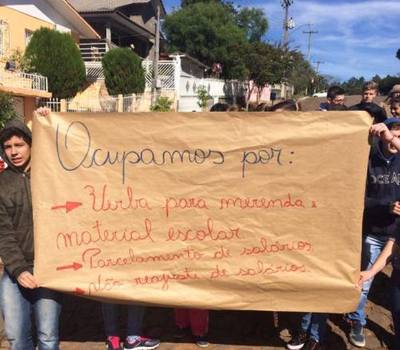 Ocupamos por:
→ Verba para merenda e
material escolar
→ Parcelamento de salários
→ Não reajuste de salários.